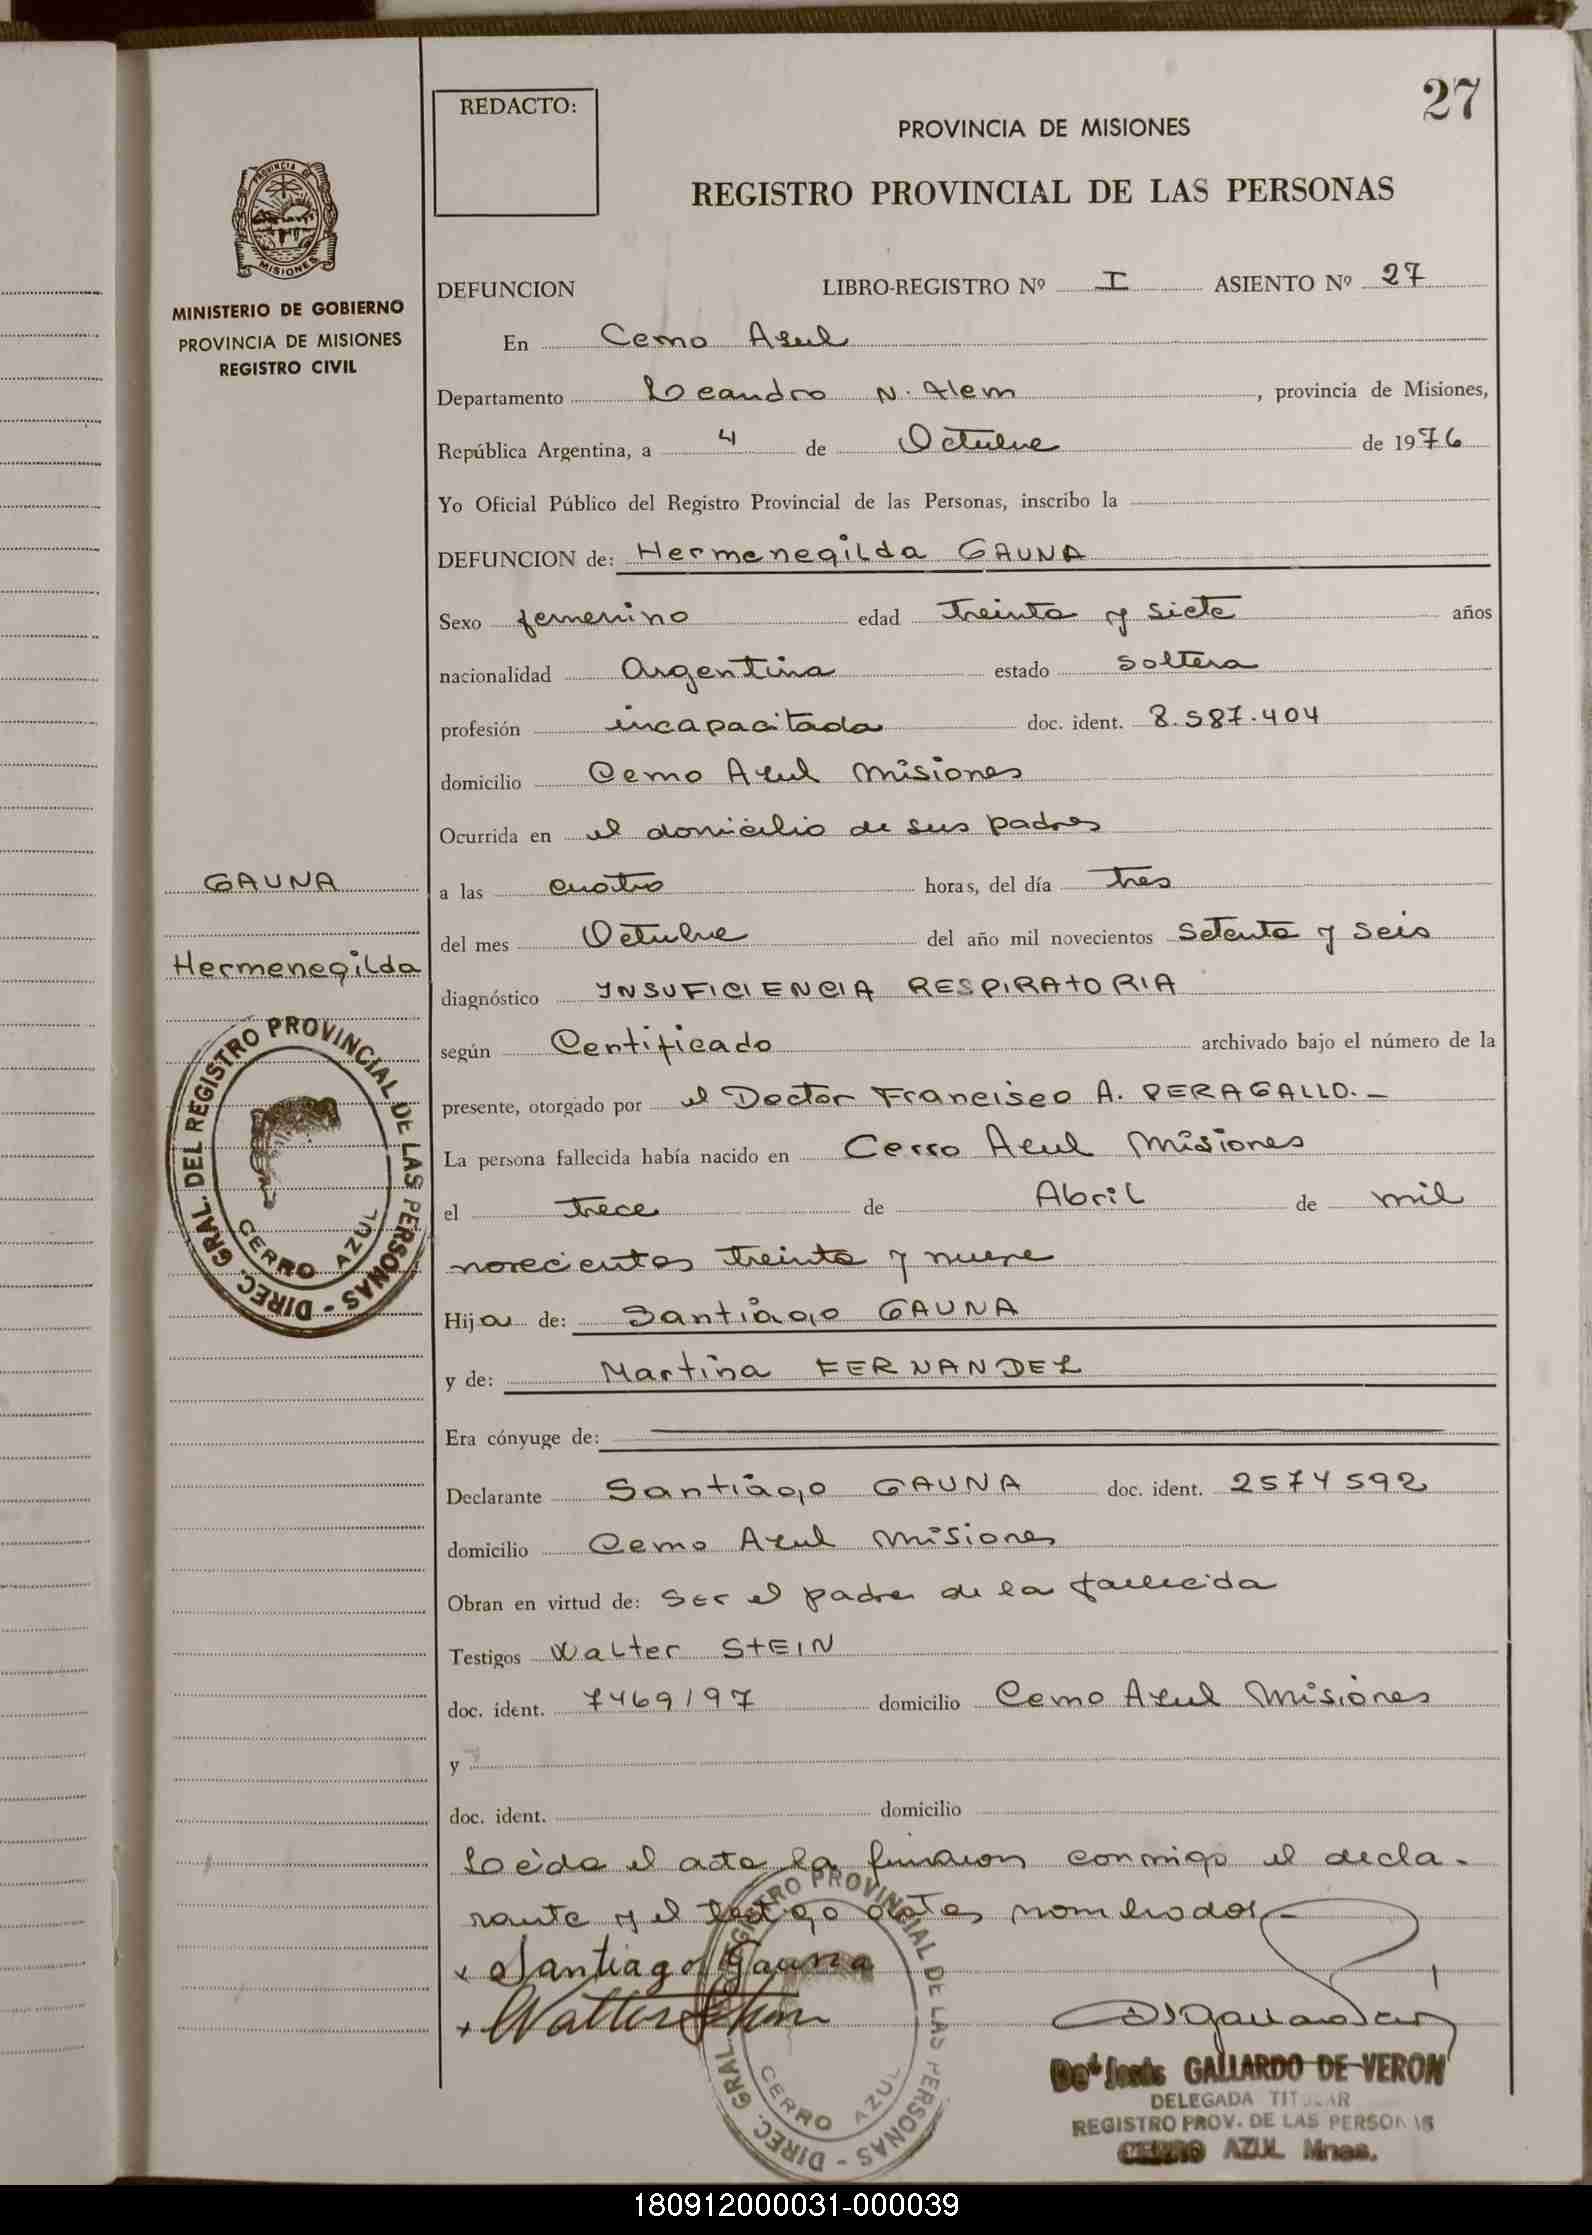 27
REDACTO:
PROVINCIA DE MISIONES
REGISTRO PROVINCIAL DE LAS PERSONAS
PROVINCIA DE
MISIONES
MINISTERIO DE GOBIERNO
PROVINCIA DE MISIONES
REGISTRO CIVIL
DEFUNCION LIBRO-REGISTRO Nº I ASIENTO Nº 27
En Cerro Azul
Departamento Leandro N. Alem, provincia de Misiones,
República Argentina, a 4 de Octubre de 1976
Yo Oficial Público del Registro Provincial de las Personas, inscribo la
DEFUNCION de: Hermenegilda GAUNA
Sexo femenino edad treinta y siete años
nacionalidad Argentina estado soltera
profesión incapacitada doc. ident. 8.587.404
domicilio Cerro Azul Misiones
Ocurrida en el domicilio de sus padres
a las cuatro horas, del día tres
del mes Octubre del año mil novecientos setenta y seis
diagnóstico INSUFICIENCIA RESPIRATORIA
según Certificado archivado bajo el número de la
presente, otorgado por el Doctor Francisco A. PERAGALLO.-
La persona fallecida había nacido en Cerro Azul Misiones
el trece de Abril de mil
novecientos treinta y nueve
Hija de: Santiago GAUNA
y de: Martina FERNANDEZ
Era cónyuge de:
Declarante Santiago GAUNA doc. ident. 2574592
domicilio Cerro Azul Misiones
Obran en virtud de: Ser el padre de la fallecida
Testigos Walter STEIN
doc. ident. 7469197 domicilio Cerro Azul Misiones
y
doc. ident. domicilio
Leida el acta la firmaron conmigo el decla-
rante y el testigo antes nombrados.-
x Santiago Gauna
x Walter Stein
GAUNA
Hermenegilda
DIREC. GRAL. DEL REGISTRO PROVINCIAL DE LAS PERSONAS -
CERRO AZUL
DIREC. GRAL. REGISTRO PROVINCIAL DE LAS PERSONAS -
CERRO AZUL
Jesús GALLARDO DE VERON
DELEGADA TITULAR
REGISTRO PROV. DE LAS PERSONAS
CERRO AZUL Mnes.
180912000031-000039